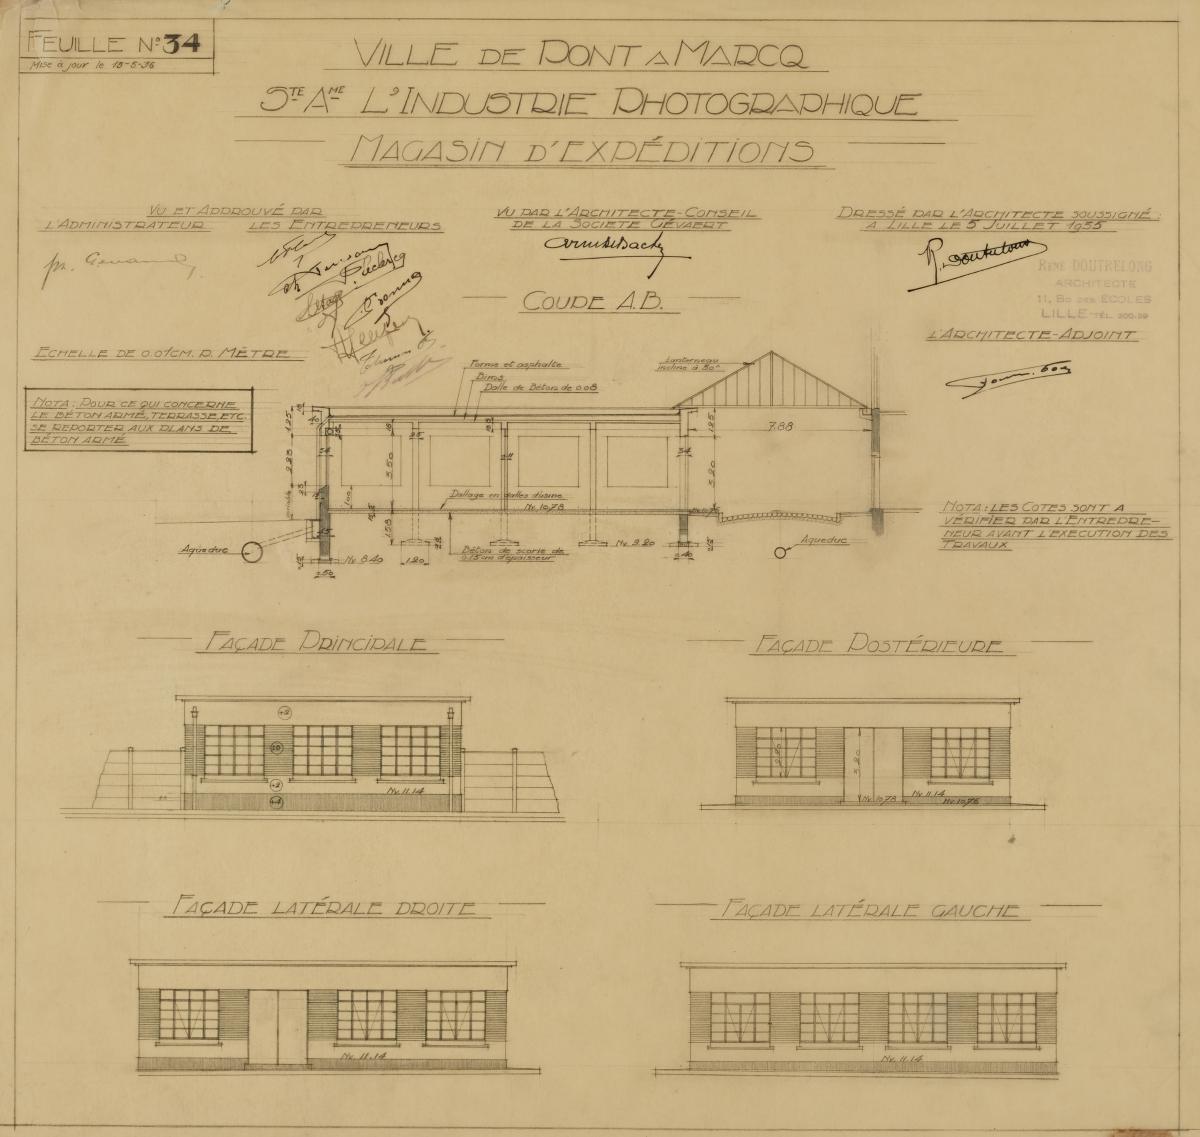 FEUILLE Nº 34
Mise à jour le 15-5-36
VILLE DE PONT A MARCQ
STE AME L'INDUSTRIE PHOTOGRAPHIQUE
MAGASIN D'EXPÉDITIONS
VU ET APPROUVÉ PAR
L'ADMINISTRATEUR LES ENTREPRENEURS
VU PAR L'ARCHITECTE-CONSEIL
DE LA SOCIETE GÉVAERT
DRESSÉ PAR L'ARCHITECTE SOUSSIGNÉ
A LILLE LE 5 JUILLET 1935
RENÉ DOUTRELONG
ARCHITECTE
11, BD DES ÉCOLES
LILLE
L'ARCHITECTE-ADJOINT
COUPE A.B.
ECHELLE DE 0.01CM. P. MÈTRE
NOTA: POUR CE QUI CONCERNE
LE BÉTON ARMÉ, TERRASSE, ETC.
SE REPORTER AUX PLANS DE
BÉTON ARMÉ
Forme et asphalte
Bims
Dalle de Béton de 0.08
Lanterneau
incliné à 30°
7.88
1.25
1.25
3.50
3.20
1.00
Dallage en dalles d'usine
Nv. 10.78
1.58
Aqueduc
Béton de scorie de
0.15 cm d'épaisseur
Nv 8.40
Nv. 9.20
.50
1.20
.40
Aqueduc
NOTA: LES COTES SONT A
VÉRIFIER PAR L'ENTREPRE-
NEUR AVANT L'EXÉCUTION DES
TRAVAUX
FAÇADE PRINCIPALE
FAÇADE POSTÉRIEURE
Nv. 11.14
2.20
3.20
Nv 10.78
Nv. 11.14
Nv. 10.76
FAÇADE LATÉRALE DROITE
FAÇADE LATÉRALE GAUCHE
Nv. 11.14
Nv. 11.14